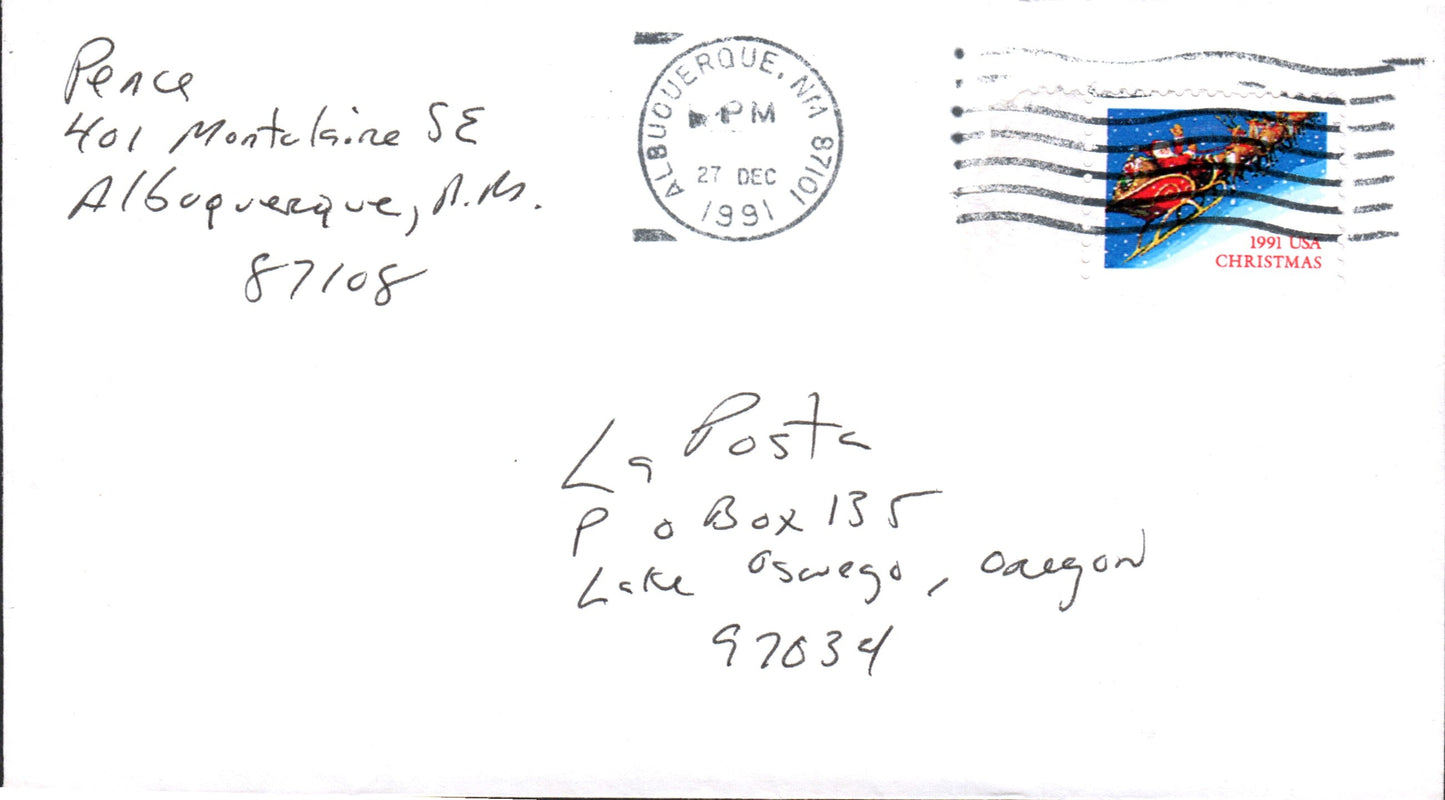 Pence
401 Montclaire SE
Albuquerque, N.M.
87108
ALBUQUERQUE, NM 87101
PM
27 DEC
1991
1991 USA
CHRISTMAS
La Posta
P o Box 135
Lake Oswego, Oregon
97034